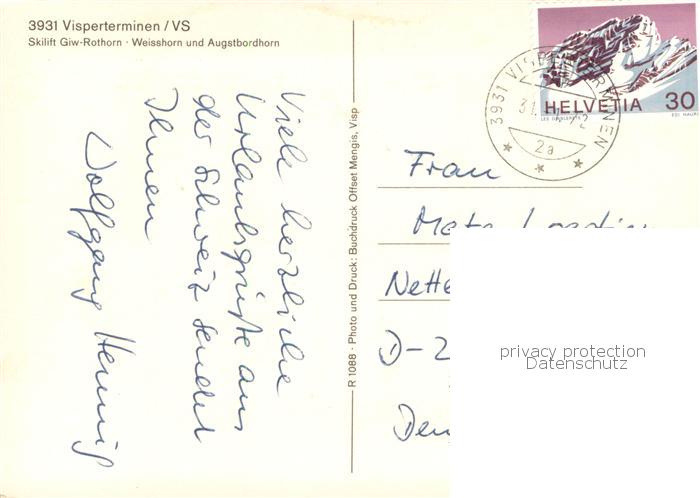 3931 Visperterminen / VS
Skilift Giw-Rothorn · Weisshorn und Augstbordhorn
Viele herzliche
Urlaubsgrüße aus
der Schweiz sendet
Ihnen
Wolfgang Hennig
R 1088 · Photo und Druck: Buchdruck Offset Mengis, Visp
HELVETIA 30
LES DIABLERETS
3931 VISPERTERMINEN
2a
Frau
Nette
D-2
privacy protection
Datenschutz